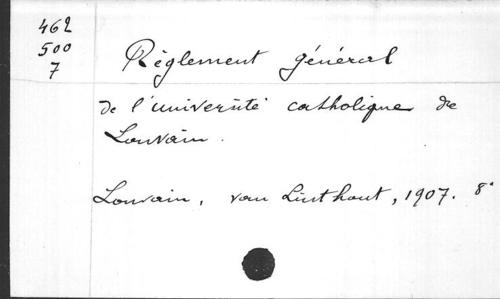 462
500
7
Règlement général
de l'université catholique de
Louvain.
Louvain, van Linthout, 1907. 8°